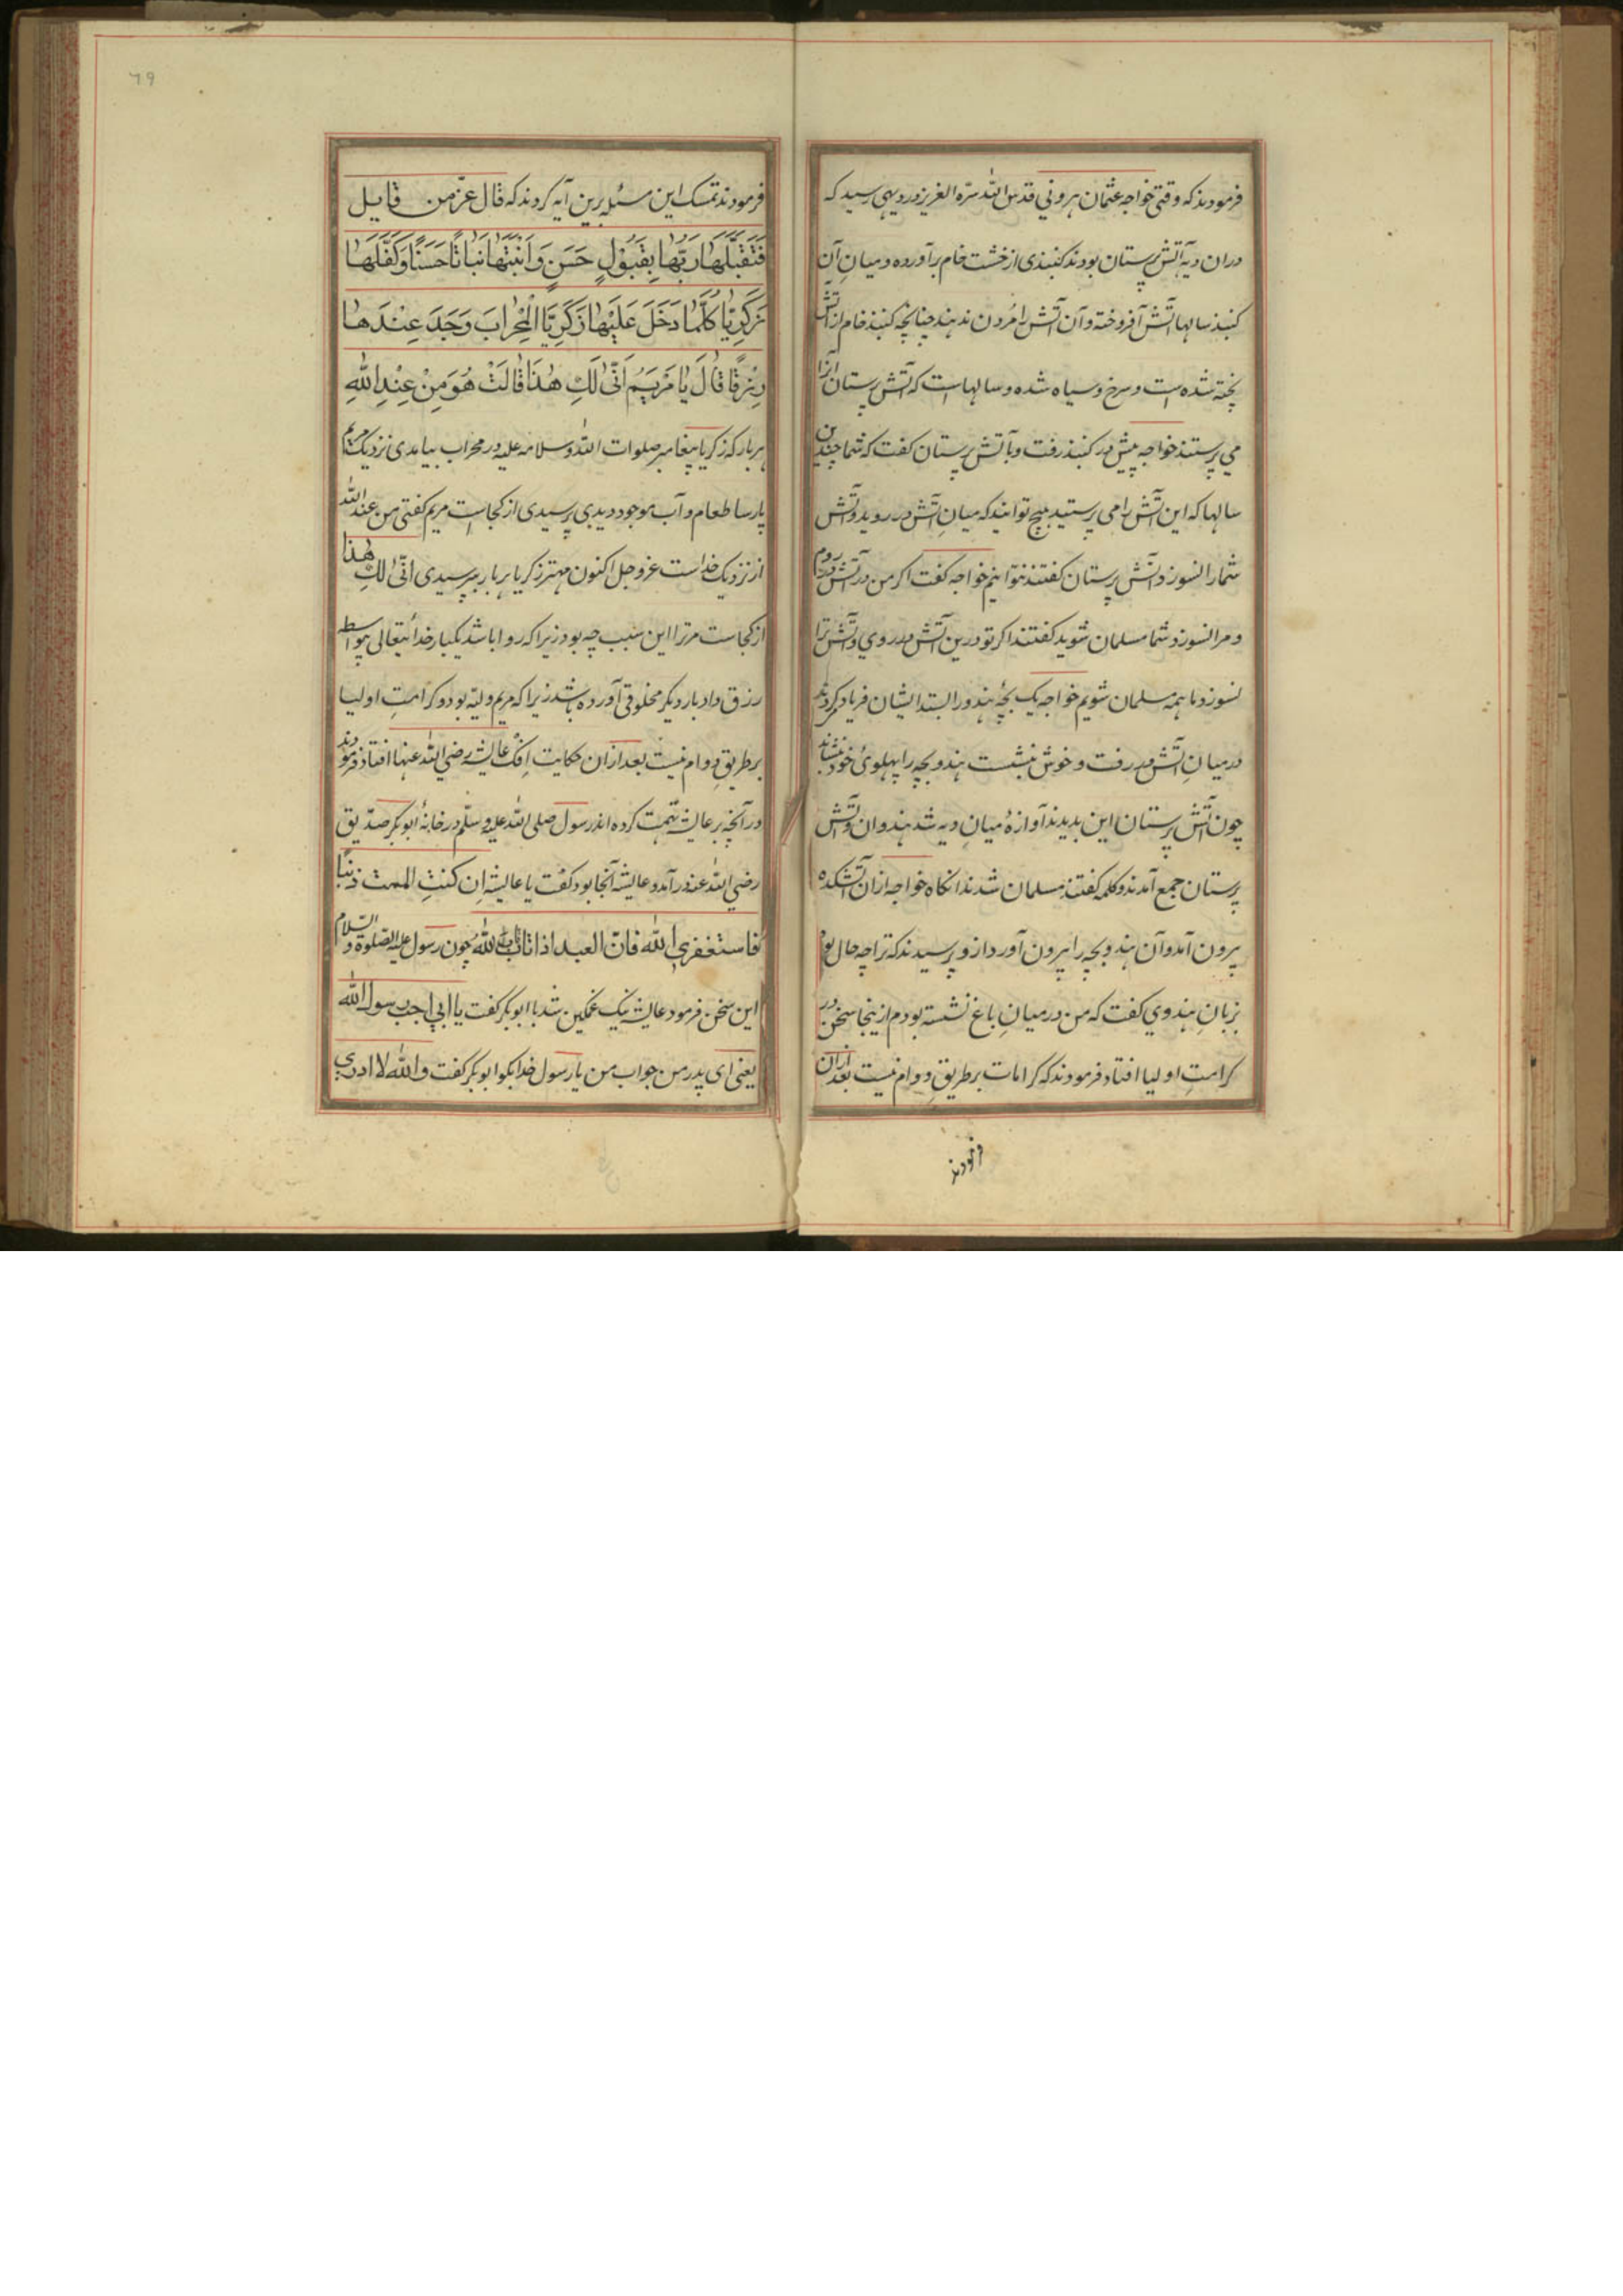 فرمودند که وقتی خواجه عثمان هرونی قدس الله سرّه العزیز در دیهی رسید که
دران دیه آتش پرستان بودند کنبذی از خشت خام برآورده و میانِ آن
کنبذ سالها آتش افروخته و آن آتش را مردن ندهند چنانچه کنبذ خام از آتش
پخته شده است و سرخ و سیاه شده و سالهاست که آتش پرستان آنرا
می پرستند خواجه پیش در کنبذ رفت و بآتش پرستان کفت که شما چندین
سالها که این آتش را می پرستید هیچ توانید که میانِ آتش در روید و آتش
شما را نسوزد آتش پرستان کفتند نتوانیم خواجه کفت اکر من در آتش در روم
و مرا نسوزد شما مسلمان شوید کفتند اکر تو درین آتش در روی و آتش ترا
نسوزد ما همه مسلمان شویم خواجه یک بچهٔ هندو را ایشان فریاد کردند
در میانِ آتش در رفت و خوش بنشست هندو بچه را پهلوئ خود بنشاند
چون آتش پرستان این بدیدند آوازهٔ میانِ دیه شد هندوان و آتش
پرستان جمع آمدند و کلمه کفتند مسلمان شدند انکاه خواجه ازان آتشکده
بیرون آمد و آن هندو بچه را بیرون آورد ازو پرسیدند که ترا چه حال بود
بزبانِ هندوی کفت که من در میانِ باغ نشسته بودم ازینجا سخن در
کرامتِ اولیا افتاد فرمودند که کرامات بر طریقِ دوام نیست بعد ازان
فرمودند
٦٩
فرمودند تمسک این مسئله برین آیه کردند که قال عزّ من قایل
فَتَقَبَّلَهَا رَبُّهَا بِقَبُوْلٍ حَسَنٍ وَاَنْبَتَهَا نَبَاتًا حَسَنًا وَكَفَّلَهَا
زَكَرِيَّا كُلَّمَا دَخَلَ عَلَيْهَا زَكَرِيَّا الْمِحْرَابَ وَجَدَ عِنْدَهَا
رِزْقًا قَالَ يَا مَرْيَمُ اَنّٰى لَكِ هٰذَا قَالَتْ هُوَ مِنْ عِنْدِ اللهِ
هربار که زکریا پیغامبر صلوات الله و سلامه علیه در محراب بیامدی نزدیک مریم
پارسا طعام و آب موجود دیدی پرسیدی از کجاست مریم کفتی من عند الله
از نزدیک خداست عزوجل اکنون مهتر زکریا هربار بپرسیدی انّی لکِ هذا
از کجاست مرترا این سبب چه بود زیراکه روا باشد یکبار خدائتعالی بیواسطه
رزق داد بار دیکر مخلوقی آورده باشد زیراکه مریم ولیّه بود و کرامتِ اولیا
بر طریقِ دوام نیست بعد ازان حکایتِ اِفک عایشه رضی الله عنها افتاد فرمودند
درآنچه بر عایشه تهمت کرده اند رسول صلی الله علیه وسلّم در خانهٔ ابوبکر صدّیق
رضی الله عنه درآمد و عایشه آنجا بود کفت یا عایشه اِن کنتِ الممت ذنبًا
فاستغفری الله فانّ العبد اذا تاب تاب الله چون رسول علیه الصّلوة و السّلام
این سخن فرمود عایشه نیک غمکین شد با ابوبکر کفت یا ابی اجب رسول الله
یعنی ای پدر من جواب من یا رسول خدا بکو ابوبکر کفت والله لا ادری